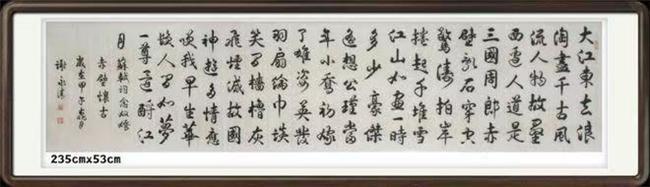 大江東去浪
淘盡千古風
流人物故壘
西邊人道是
三國周郎赤
壁亂石穿空
驚濤拍岸
捲起千堆雪
江山如畫一時
多少豪傑
遙想公瑾當
年小喬初嫁
了雄姿英發
羽扇綸巾談
笑間檣櫓灰
飛煙滅故國
神遊多情應
笑我早生華
髮人間如夢
一尊還酹江
月 蘇軾詞念奴嬌
赤壁懷古
歲在甲午月
235cmx53cm